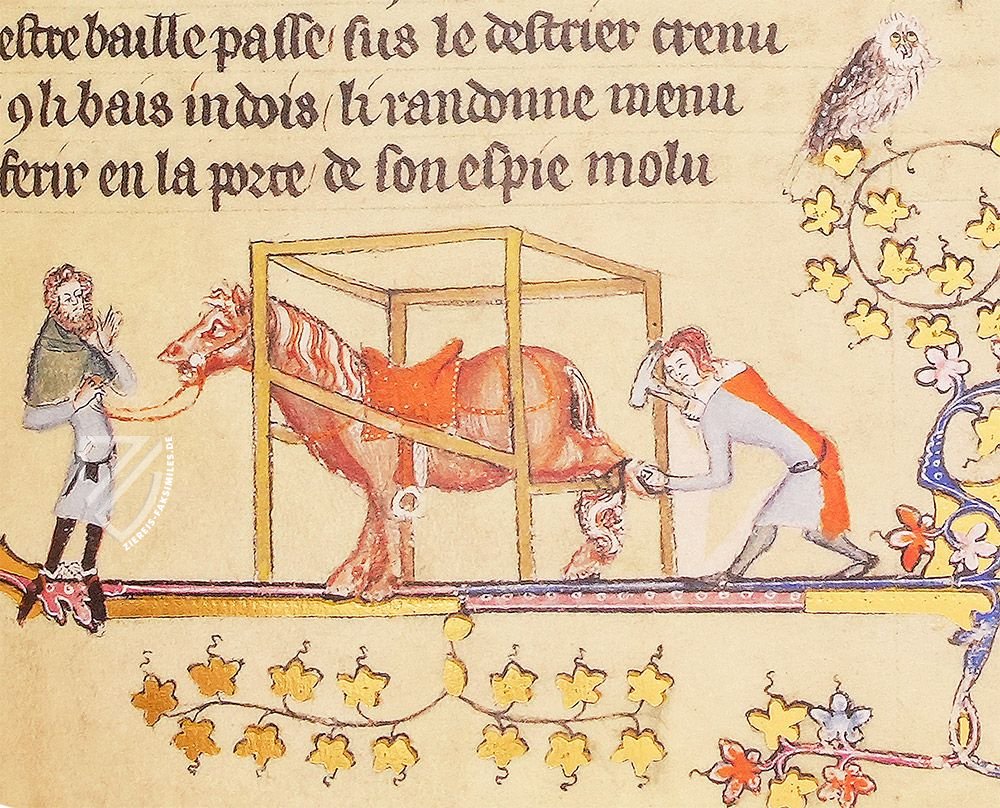 estre baille passe / sus le destrier crenu
⁊ 9 li bais indois / li randonne menu
ferir en la porte / de son espie molu
ZIEREIS-FAKSIMILES.DE